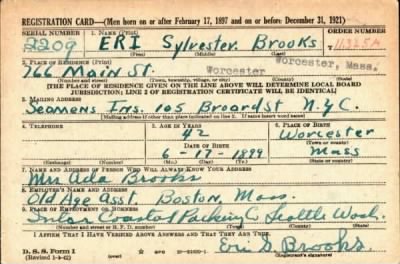 REGISTRATION CARD—(Men born on or after February 17, 1897 and on or before December 31, 1921)
SERIAL NUMBER 1. NAME (Print) ORDER NUMBER
2209 ERI Sylvester Brooks
(First) (Middle) (Last)
2. PLACE OF RESIDENCE (Print)
766 Main St. Worcester Worcester, Mass.
(Number and street) (Town, township, village, or city) (County) (State)
[THE PLACE OF RESIDENCE GIVEN ON THE LINE ABOVE WILL DETERMINE LOCAL BOARD
JURISDICTION; LINE 2 OF REGISTRATION CERTIFICATE WILL BE IDENTICAL]
3. MAILING ADDRESS
Seamens Ins. 105 Broard st N.Y.C.
[Mailing address if other than place indicated on line 2. If same insert word same]
4. TELEPHONE 5. AGE IN YEARS 6. PLACE OF BIRTH
42 Worcester
DATE OF BIRTH (Town or county)
6-17-1899 Mass
(Exchange) (Number) (Mo.) (Day) (Yr.) (State or country)
7. NAME AND ADDRESS OF PERSON WHO WILL ALWAYS KNOW YOUR ADDRESS
Mrs Brooks
8. EMPLOYER'S NAME AND ADDRESS
Old Age Asst. Boston, Mass.
9. PLACE OF EMPLOYMENT OR BUSINESS
Inter Coastal Packing Co Seattle Wash.
(Number and street or R. F. D. number) (Town) (County) (State)
I AFFIRM THAT I HAVE VERIFIED ABOVE ANSWERS AND THAT THEY ARE TRUE.
D. S. S. Form 1
(Revised 1-1-42) (over) Eri S. Brooks
(Registrant's signature)